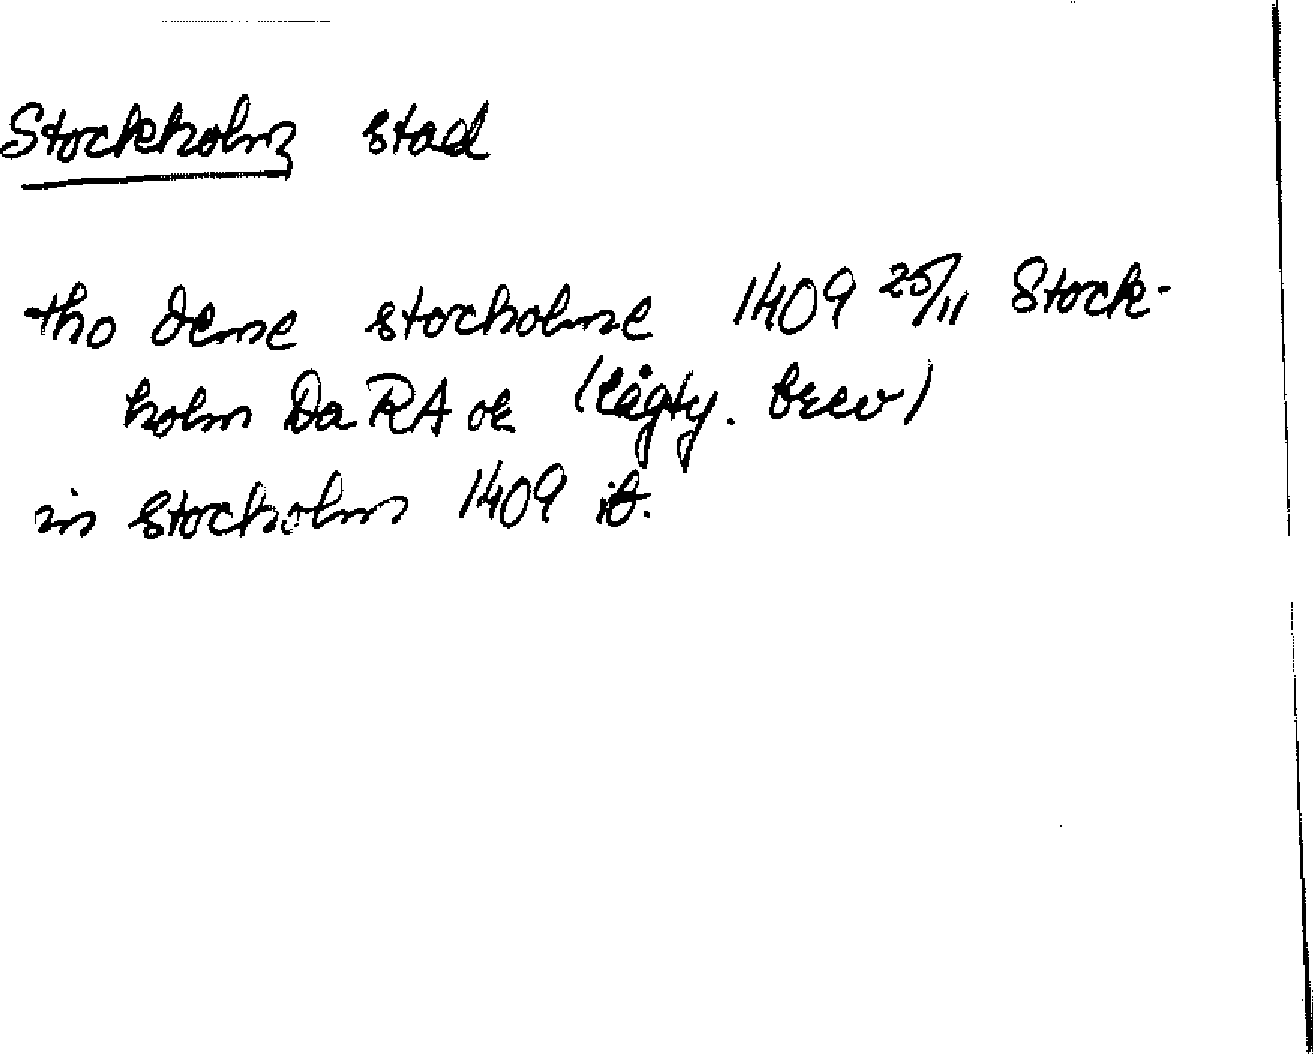 Stockholm stad
tho deme stocholme 1409 25/11 Stock-
holm DaRA or (lågty. brev)
in stocholm 1409 ib.